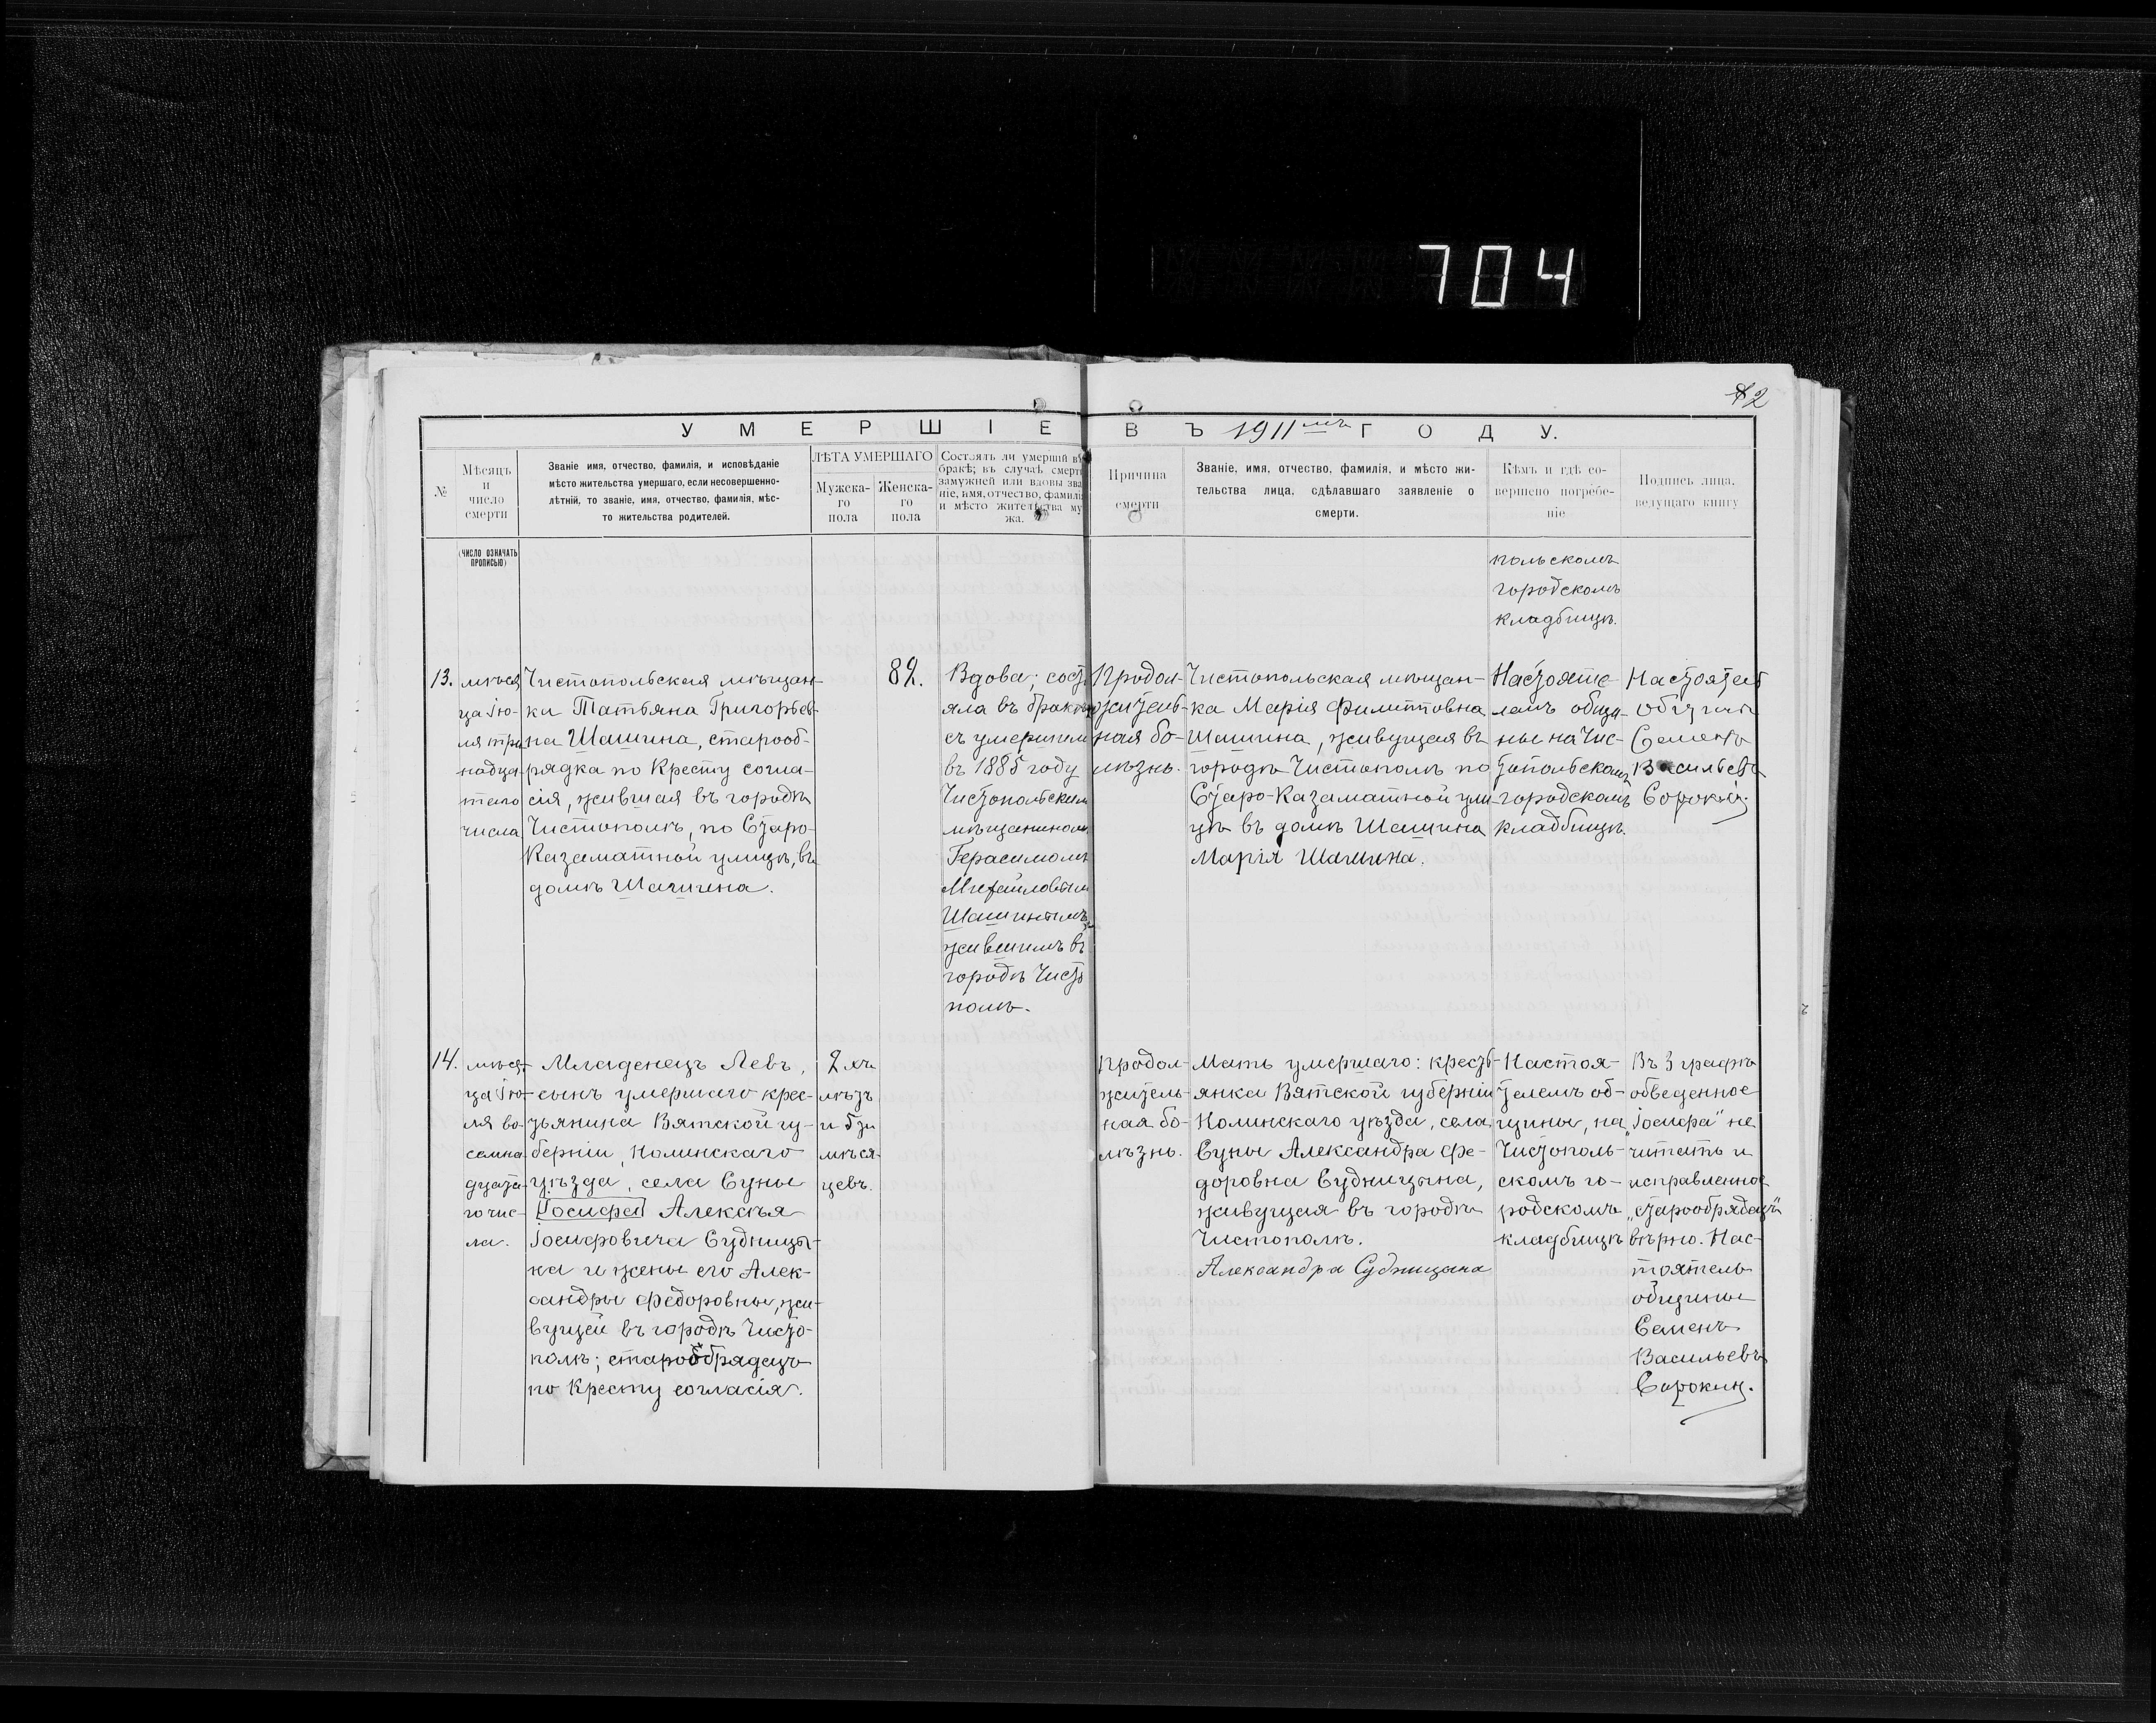 704
42
УМЕРШІЕ ВЪ 1911мъ ГОДУ.
№
Мѣсяцъ
и
число
смерти
Званіе имя, отчество, фамилія, и исповѣданіе
мѣсто жительства умершаго, если несовершенно-
лѣтній, то званіе, имя, отчество, фамилія, мѣс-
то жительства родителей.
ЛѢТА УМЕРШАГО
Мужска-
го
пола
Женска-
го
пола
Состоялъ ли умершій въ
бракѣ; въ случаѣ смерти
замужней или вдовы зва
ніе, имя, отчество, фамилія
и мѣсто жительства му
жа.
Причина
смерти
Званіе, имя, отчество, фамилія, и мѣсто жи-
тельства лица, сдѣлавшаго заявленіе о
смерти.
Кѣмъ и гдѣ со-
вершено погребе-
ніе
Подпись лица,
ведущаго книгу
(ЧИСЛО ОЗНАЧАТЬ
ПРОПИСЬЮ)
польскомъ
городскомъ
кладбищѣ.
13.
мѣся
ца Ію-
ля три
надца-
таго
числа
Чистопольская мѣщан-
ка Татьяна Григорьев-
на Шашина, старооб-
рядка по Кресту согла-
сія, жившая въ городѣ
Чистополѣ, по Старо-
Казаматной улицѣ, въ
домѣ Шашина.
82.
Вдова; состо
яла въ бракѣ
съ умершим
въ 1885 году
Чистопольским
мѣщанином
Герасимомъ
Михайловым
Шашинымъ,
жившимъ въ
городѣ Чисто
полѣ.
Продол-
житель-
ная бо-
лѣзнь.
Чистопольская мѣщан-
ка Марія Филипповна
Шашина, живущая въ
городѣ Чистополѣ по
Старо-Казаматной ули-
цѣ въ домѣ Шашина
Марія Шашина.
Настояте-
лемъ общи-
ны на Чис-
топольскомъ
городскомъ
кладбищѣ.
Настоятель
общины
Семенъ
Васильевъ
Сорокинъ
14.
мѣся-
ца Ію-
ля во-
семна-
дцата-
го чис-
ла.
Младенецъ Левъ,
сынъ умершаго крес-
тьянина Вятской гу-
берніи, Нолинскаго
уѣзда, села Суны
Іосифа Алексѣя
Іосифовича Судницы-
на и жены его Алек-
сандры Федоровны, жи-
вущей въ городѣ Чисто-
полѣ; старообрядецъ
по Кресту согласія.
2 хъ
лѣтъ
и 5 ти
мѣся-
цевъ.
Продол-
житель-
ная бо-
лѣзнь.
Мать умершаго: крестъ-
янка Вятской губерніи
Нолинскаго уѣзда, села
Суны Александра Фе-
доровна Судницына,
живущая въ городѣ
Чистополѣ.
Александра Судницына
Настоя-
телемъ об-
щины, на
Чистополь-
скомъ го-
родскомъ
кладбищѣ
Въ 3 графѣ
обведенное
„Іосифа“ не
читать и
исправленное
„старообрядецъ“
вѣрно. Нас-
тоятель
общины
Семенъ
Васильевъ
Сорокинъ.